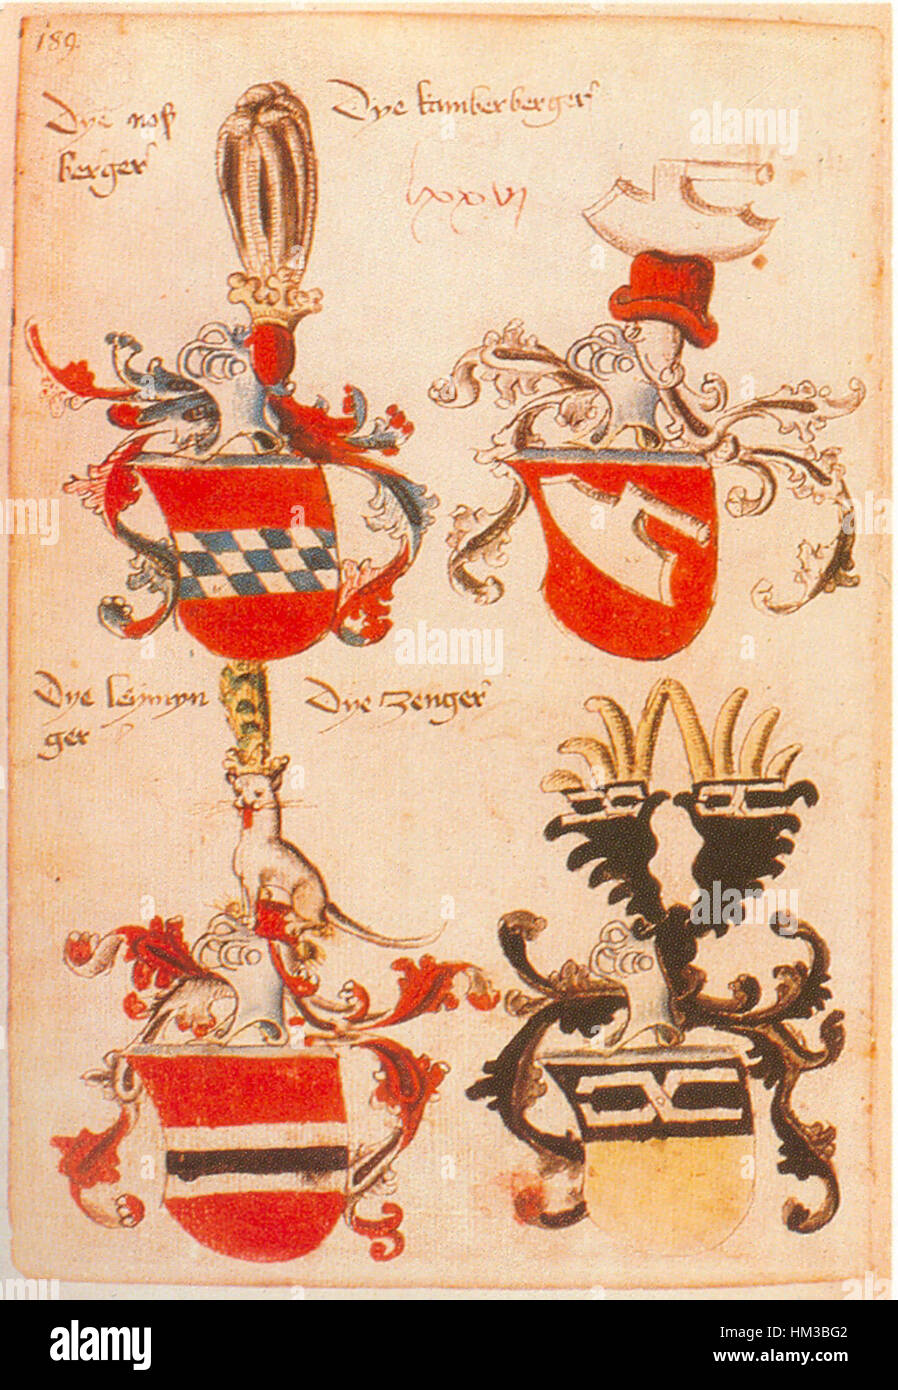 189.
Dye nos
berger
Dye kamberberger
lxxvi
Dye leymyn
ger
Dye zenger
alamy stock photo
HM3BG2
www.alamy.com